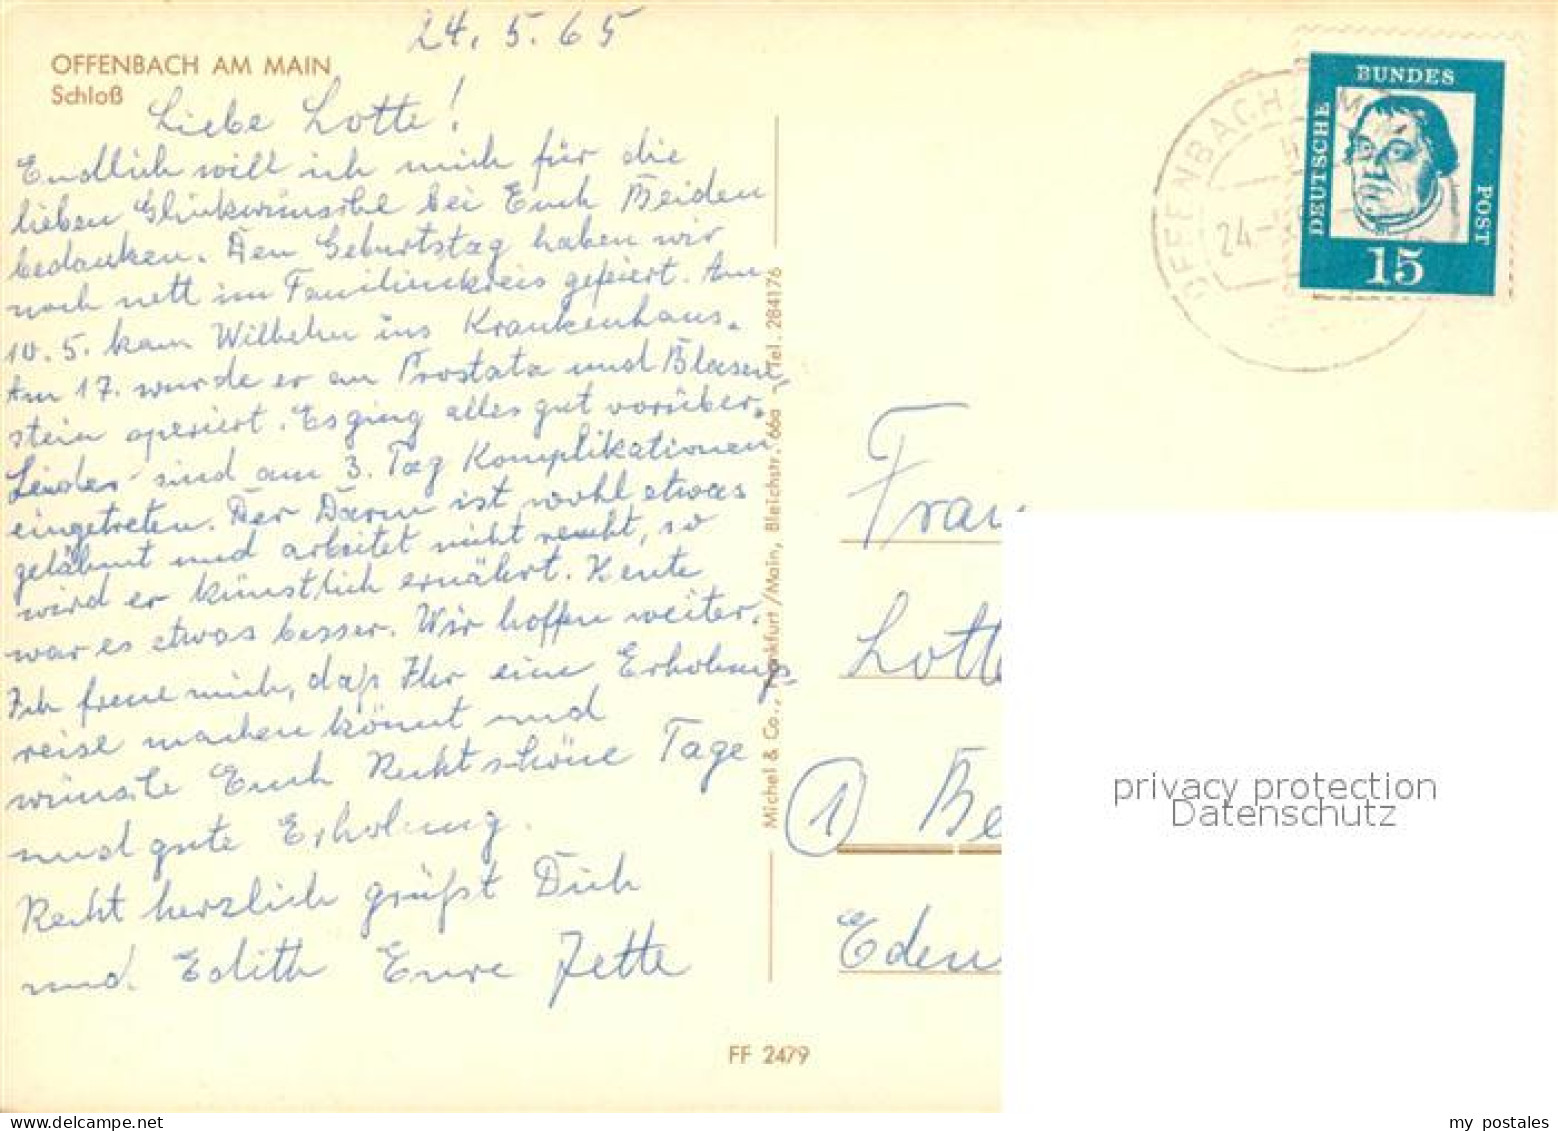 24. 5. 65
OFFENBACH AM MAIN
Schloß
Liebe Lotte!
Endlich will ich mich für die
lieben Glückwünsche bei Euch Beiden
bedanken. Den Geburtstag haben wir
noch nett im Familienkreis gefeiert. Am
10. 5. kam Wilhelm ins Krankenhaus.
Am 17. wurde er an Prostata und Blasen-
stein operiert. Es ging alles gut vorüber.
Leider sind am 3. Tag Komplikationen
eingetreten. Der Darm ist wohl etwas
gelähmt und arbeitet nicht recht, so
wird er künstlich ernährt. Heute
war es etwas besser. Wir hoffen weiter.
Ich freue mich, daß Ihr eine Erholungs-
reise machen könnt und
wünsche Euch Recht schöne Tage
und gute Erholung.
Recht herzlich grüßt Dich
und Edith Eure Jette
Michel & Co., Frankfurt/Main, Bleichstr. 66a - Tel. 284176
FF 2479
OFFENBACH AM
24-
DEUTSCHE
BUNDES
POST
15
Frau
Lotte
1 Be
Eden
privacy protection
Datenschutz
my postales